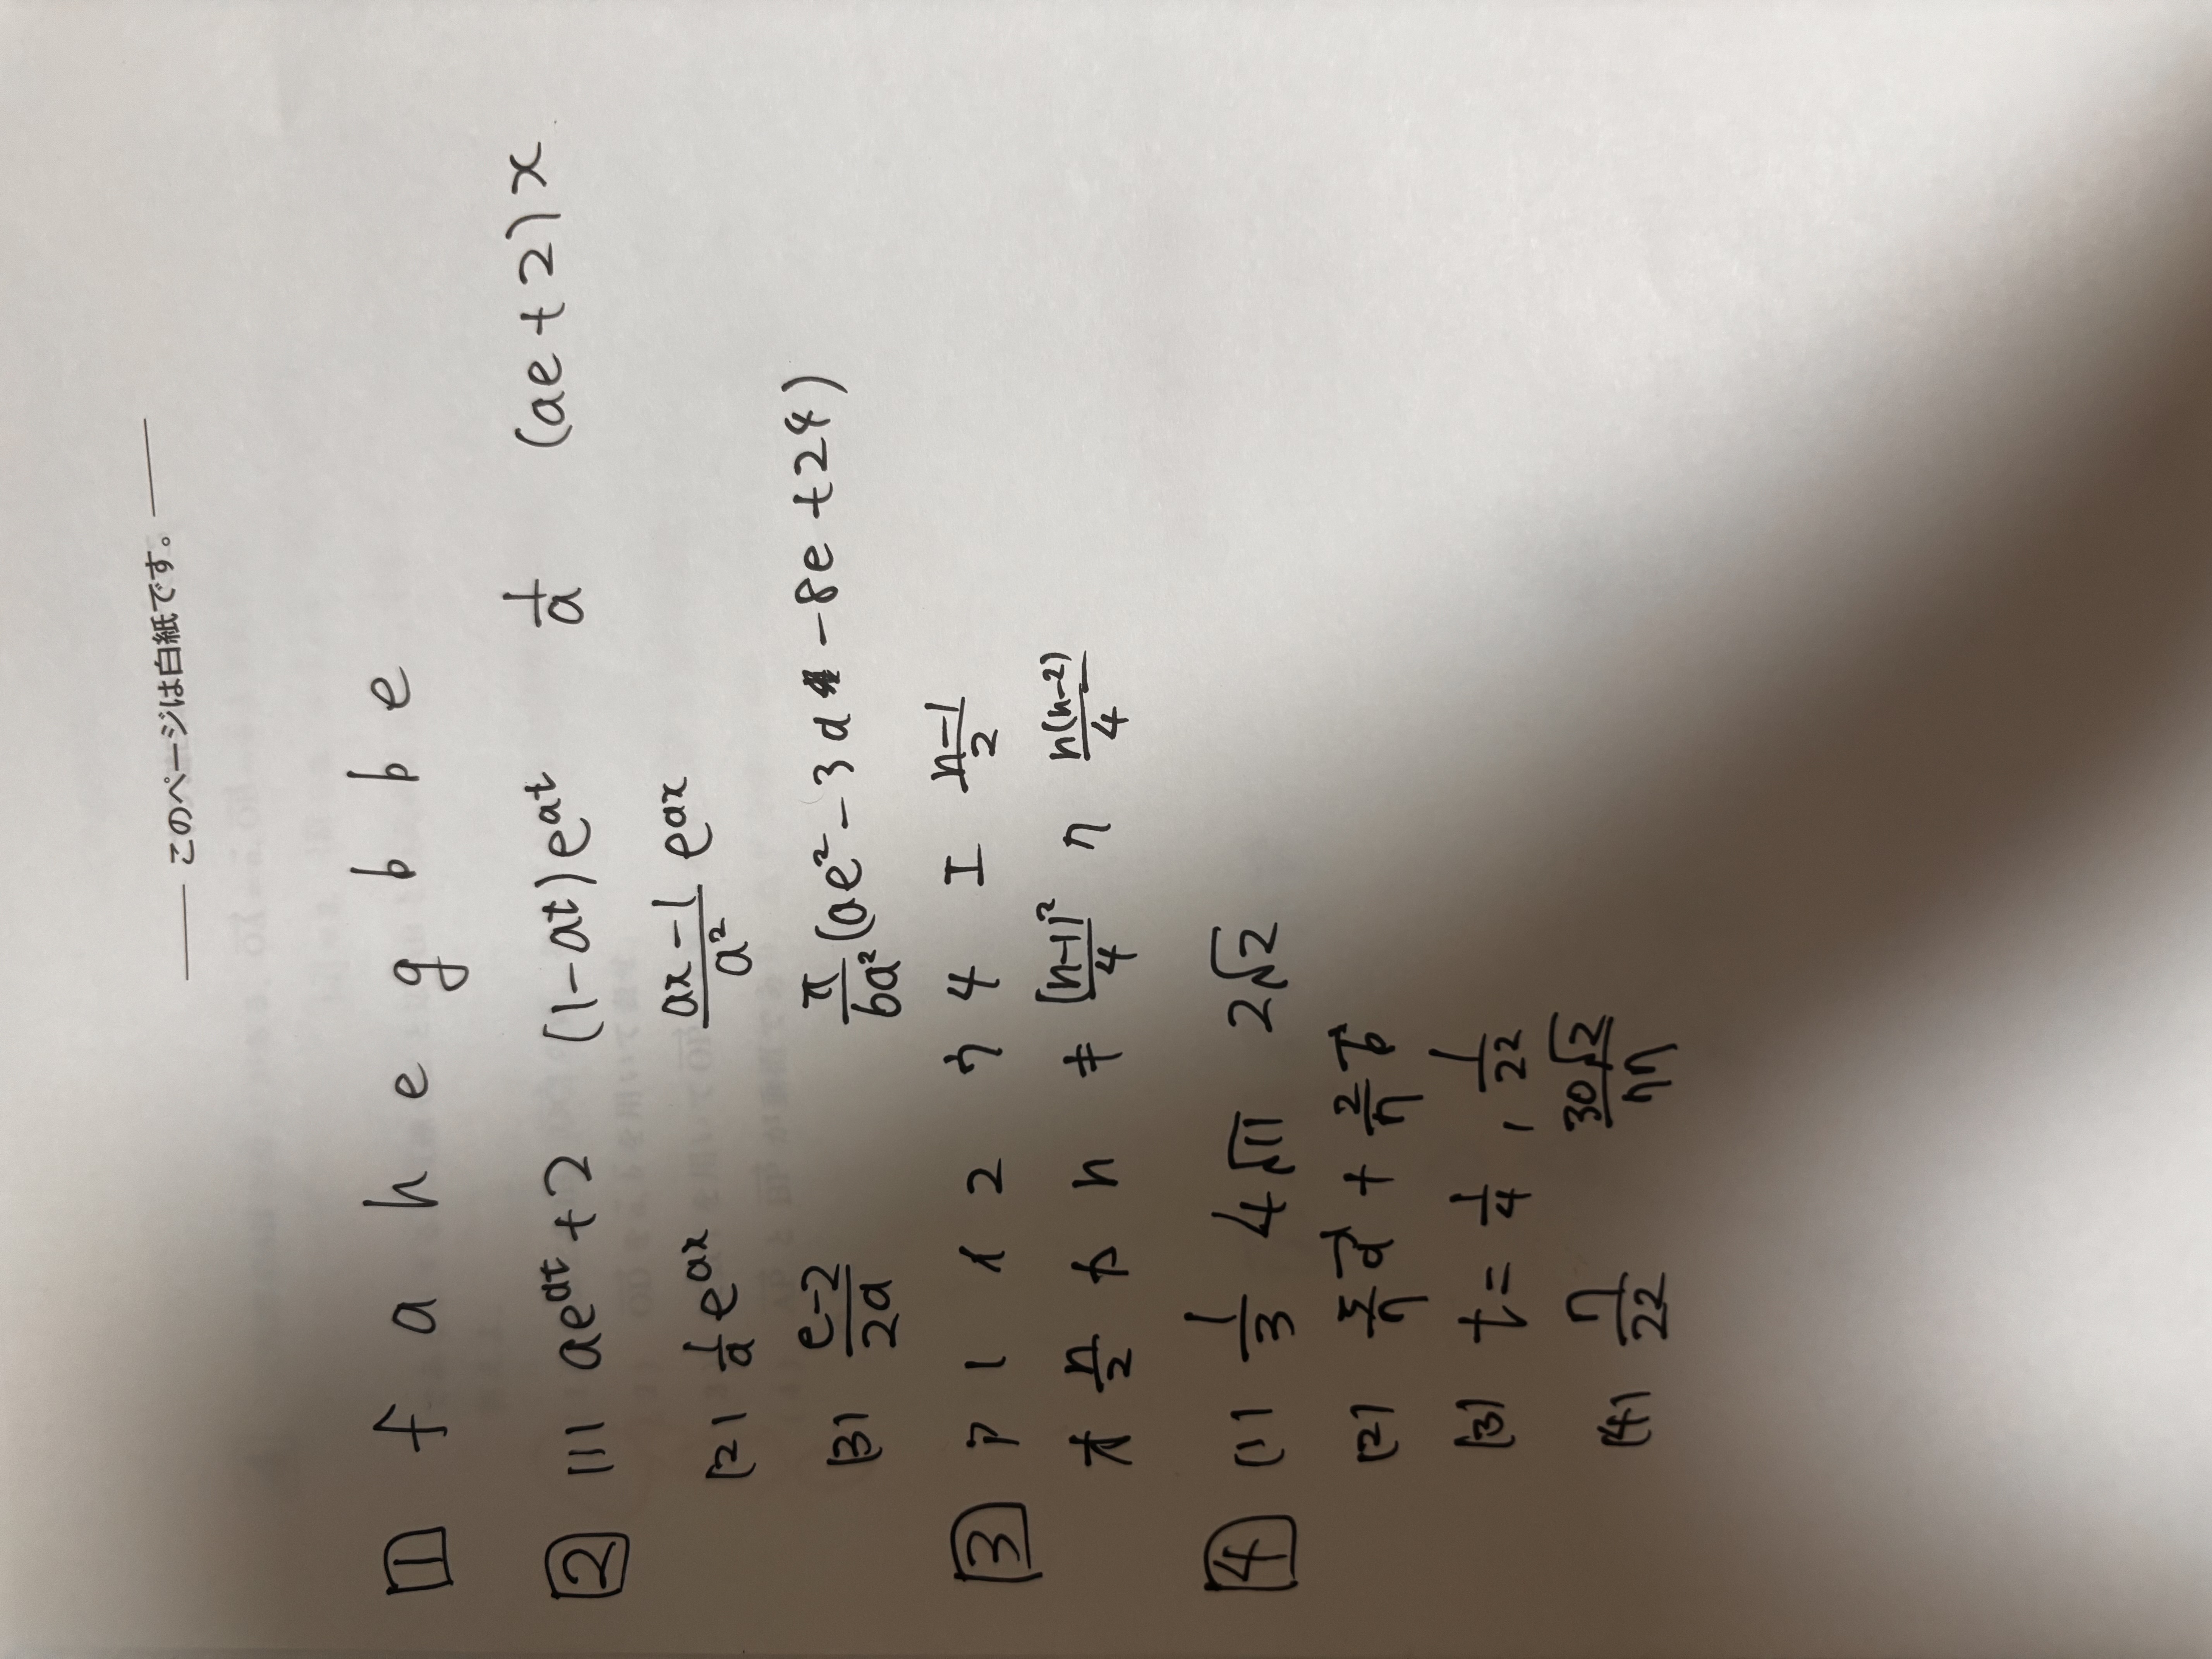 ―― このページは白紙です。 ――
1 f a h e g b b e
2 (1) ae^{at}+2 (1-at)e^{at} 1/a (ae+2)x
(2) 1/a e^{ax} (ax-1)/a² e^{ax}
(3) (e-2)/2a π/6a² (ae²-3a -8e+24)
3 ア 1 イ 2 ウ 4 エ (n-1)/2
オ n/2 カ n キ (n-1)²/4 ク n(n-2)/4
4 (1) 1/3 4√11 2√2
(2) 5/7 a⃗ + 2/7 b⃗
(3) t= 1/4 , 1/22
(4) 7/22 30√2/77